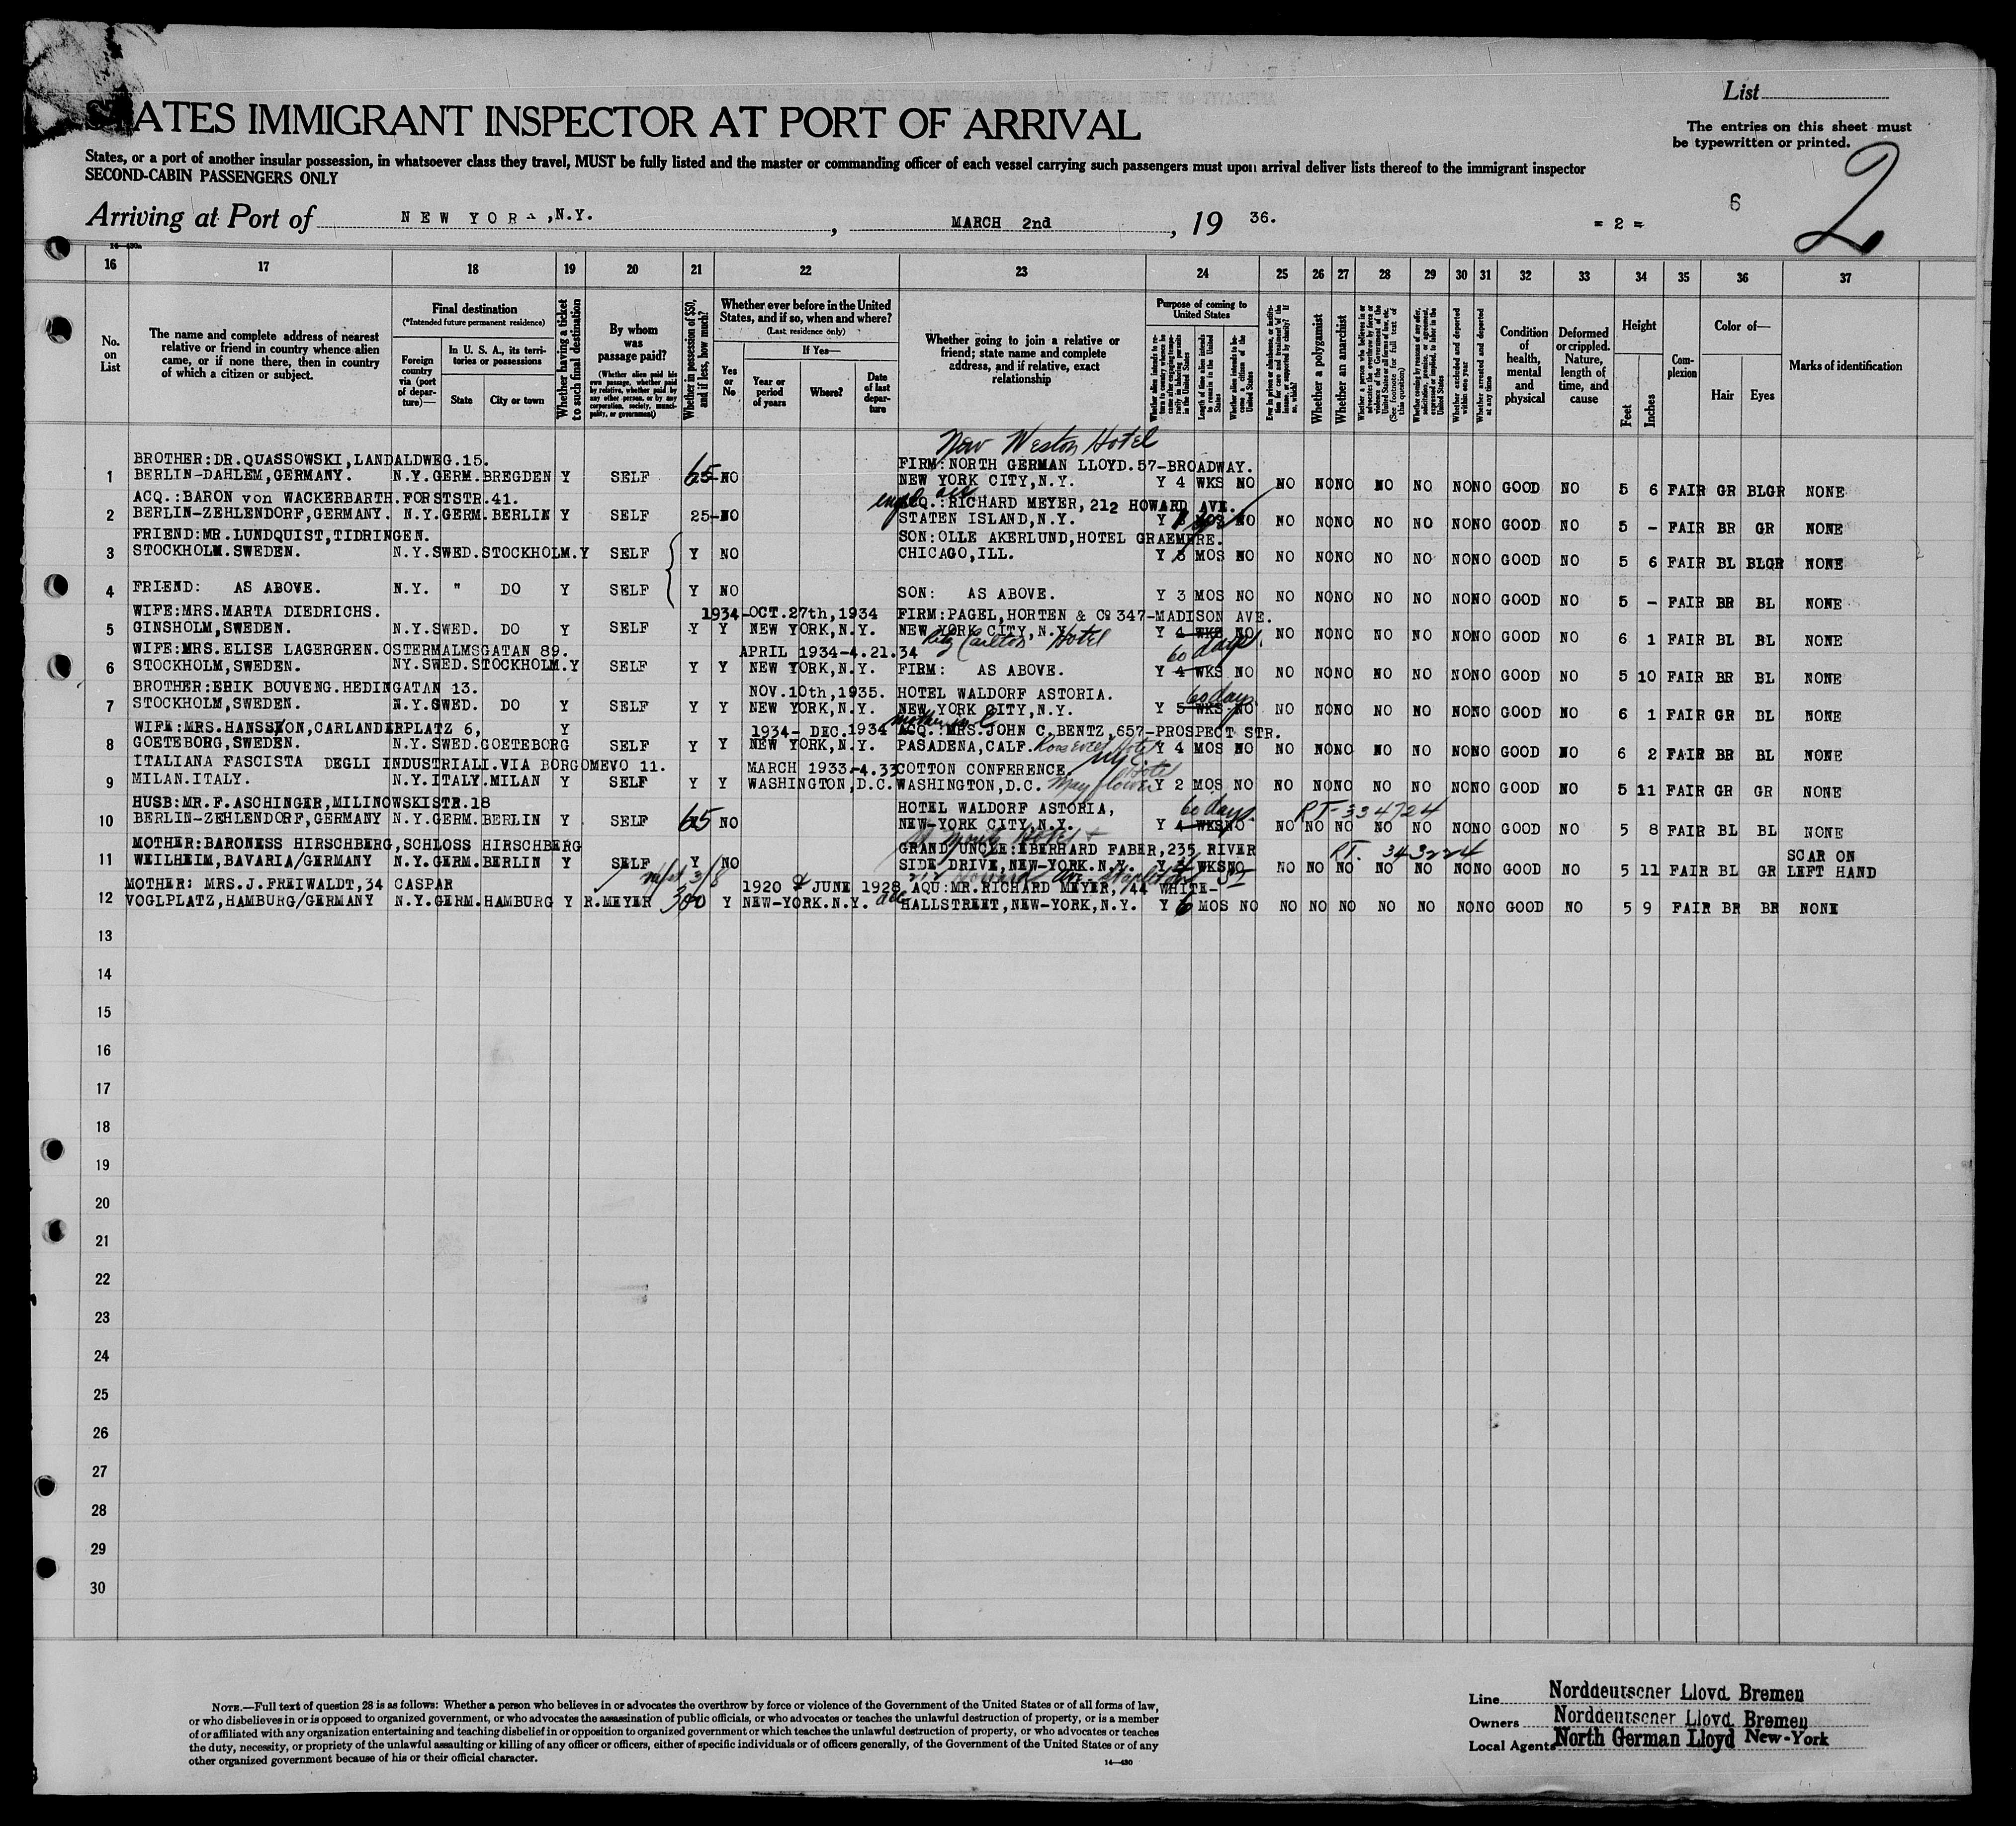 STATES IMMIGRANT INSPECTOR AT PORT OF ARRIVAL
List
The entries on this sheet must
be typewritten or printed.
States, or a port of another insular possession, in whatsoever class they travel, MUST be fully listed and the master or commanding officer of each vessel carrying such passengers must upon arrival deliver lists thereof to the immigrant inspector
SECOND-CABIN PASSENGERS ONLY
2
6
Arriving at Port of NEW YORK, N.Y., MARCH 2nd, 19 36.
= 2 =
16 17 18 19 20 21 22 23 24 25 26 27 28 29 30 31 32 33 34 35 36 37
No. on List
The name and complete address of nearest relative or friend in country whence alien came, or if none there, then in country of which a citizen or subject.
Final destination
(*Intended future permanent residence)
Foreign country via (port of departure)—
In U. S. A., its territories or possessions
State
City or town
Whether having a ticket to such final destination
By whom was passage paid?
(Whether alien paid his own passage, whether paid by relative, whether paid by any other person, or by any corporation, society, municipality, or government)
Whether in possession of $50, and if less, how much?
Whether ever before in the United States, and if so, when and where?
(Last residence only)
Yes or No
If Yes—
Year or period of years
Where?
Date of last departure
Whether going to join a relative or friend; state name and complete address, and if relative, exact relationship
Purpose of coming to United States
Length of time alien intends to remain in the United States
Whether alien intends to become a citizen of the United States
Whether a polygamist
Whether an anarchist
Whether excluded and deported within one year
Whether arrested and deported at any time
Condition of health, mental and physical
Deformed or crippled. Nature, length of time, and cause
Height
Feet
Inches
Complexion
Color of—
Hair
Eyes
Marks of identification
New Weston Hotel
BROTHER:DR.QUASSOWSKI,LANDALDWEG.15. FIRM:NORTH GERMAN LLOYD.57-BROADWAY.
1 BERLIN-DAHLEM,GERMANY. N.Y.GERM.BREGDEN Y SELF 65 NO NEW YORK CITY,N.Y. Y 4 WKS NO NO NO NO NO NO NO NO GOOD NO 5 6 FAIR GR BLGR NONE
ACQ.:BARON von WACKERBARTH.FORSTSTR.41. ACQ.:RICHARD MEYER,212 HOWARD AVE.
2 BERLIN-ZEHLENDORF,GERMANY. N.Y.GERM.BERLIN Y SELF 25-NO STATEN ISLAND,N.Y. Y MOS NO NO NO NO NO NO NO NO GOOD NO 5 - FAIR BR GR NONE
FRIEND:MR.LUNDQUIST,TIDRINGEN. SON:OLLE AKERLUND,HOTEL GRAEMERE.
3 STOCKHOLM.SWEDEN. N.Y.SWED.STOCKHOLM.Y SELF Y NO CHICAGO,ILL. Y MOS NO NO NO NO NO NO NO NO GOOD NO 5 6 FAIR BL BLGR NONE
4 FRIEND: AS ABOVE. N.Y. " DO Y SELF Y NO SON: AS ABOVE. Y 3 MOS NO NO NO NO NO NO NO NO GOOD NO 5 - FAIR BR BL NONE
WIFE:MRS.MARTA DIEDRICHS. 1934-OCT.27th,1934 FIRM:PAGEL,HORTEN & Co 347-MADISON AVE.
5 GINSHOLM,SWEDEN. N.Y.SWED. DO Y SELF Y Y NEW YORK,N.Y. NEW YORK CITY,N.Y. Y 4 WKS NO NO NO NO NO NO NO NO GOOD NO 6 1 FAIR BL BL NONE
Ritz Carlton Hotel 60 days
WIFE:MRS.ELISE LAGERGREN.OSTERMALMSGATAN 89. APRIL 1934-4.21.34
6 STOCKHOLM,SWEDEN. NY.SWED.STOCKHOLM.Y SELF Y Y NEW YORK,N.Y. FIRM: AS ABOVE. Y 4 WKS NO NO NO NO NO NO NO NO GOOD NO 5 10 FAIR BR BL NONE
BROTHER:ERIK BOUVENG.HEDINGATAN 13. NOV.10th,1935. HOTEL WALDORF ASTORIA. 60 days
7 STOCKHOLM,SWEDEN. N.Y.SWED. DO Y SELF Y Y NEW YORK,N.Y. NEW YORK CITY,N.Y. Y 5 WKS NO NO NO NO NO NO NO NO GOOD NO 6 1 FAIR GR BL NONE
WIFE:MRS.HANSSON,CARLANDERPLATZ 6, Y 1934- DEC.1934 ACQ.:MRS.JOHN C.BENTZ,657-PROSPECT STR.
8 GOETEBORG,SWEDEN. N.Y.SWED.GOETEBORG SELF Y Y NEW YORK,N.Y. PASADENA,CALF. Roosevelt Hotel NYC Y 4 MOS NO NO NO NO NO NO NO NO GOOD NO 6 2 FAIR BR BL NONE
ITALIANA FASCISTA DEGLI INDUSTRIALI.VIA BORGOMEVO 11. MARCH 1933-4.33 COTTON CONFERENCE.
9 MILAN.ITALY. N.Y.ITALY.MILAN Y SELF Y Y WASHINGTON,D.C. WASHINGTON,D.C. Mayflower Hotel Y 2 MOS NO NO NO NO NO NO NO NO GOOD NO 5 11 FAIR GR GR NONE
HUSB:MR.F.ASCHINGER,MILINOWSKISTR.18 HOTEL WALDORF ASTORIA, 60 days RT-334724
10 BERLIN-ZEHLENDORF,GERMANY N.Y.GERM.BERLIN Y SELF 65 NO NEW-YORK CITY.N.Y. Y 4 WKS NO NO NO NO NO NO NO NO GOOD NO 5 8 FAIR BL BL NONE
MOTHER:BARONESS HIRSCHBERG,SCHLOSS HIRSCHBERG GRAND UNCLE:EBERHARD FABER,235 RIVER RT. 343224 SCAR ON
11 WEILHEIM,BAVARIA/GERMANY N.Y.GERM.BERLIN Y SELF Y NO SIDE DRIVE,NEW-YORK.N.Y. Y WKS NO NO NO NO NO NO NO NO GOOD NO 5 11 FAIR BL GR LEFT HAND
MOTHER: MRS.J.FREIWALDT,34 CASPAR 1920 JUNE 1928 AQU:MR.RICHARD MEYER, 44 WHITE-
12 VOGLPLATZ,HAMBURG/GERMANY N.Y.GERM.HAMBURG Y R.MEYER Y NEW-YORK.N.Y. HALLSTREET,NEW-YORK,N.Y. Y 6 MOS NO NO NO NO NO NO NO NO GOOD NO 5 9 FAIR BR BR NONE
13
14
15
16
17
18
19
20
21
22
23
24
25
26
27
28
29
30
NOTE.—Full text of question 28 is as follows: Whether a person who believes in or advocates the overthrow by force or violence of the Government of the United States or of all forms of law,
or who disbelieves in or is opposed to organized government, or who advocates the assassination of public officials, or who advocates or teaches the unlawful destruction of property, or is a member
of or affiliated with any organization entertaining and teaching disbelief in or opposition to organized government or which teaches the unlawful destruction of property, or who advocates or teaches
the duty, necessity, or propriety of the unlawful assaulting or killing of any officer or officers, either of specific individuals or of officers generally, of the Government of the United States or of any
other organized government because of his or their official character.
14—430
Line Norddeutscher Lloyd Bremen
Owners Norddeutscher Lloyd Bremen
Local Agents North German Lloyd New-York